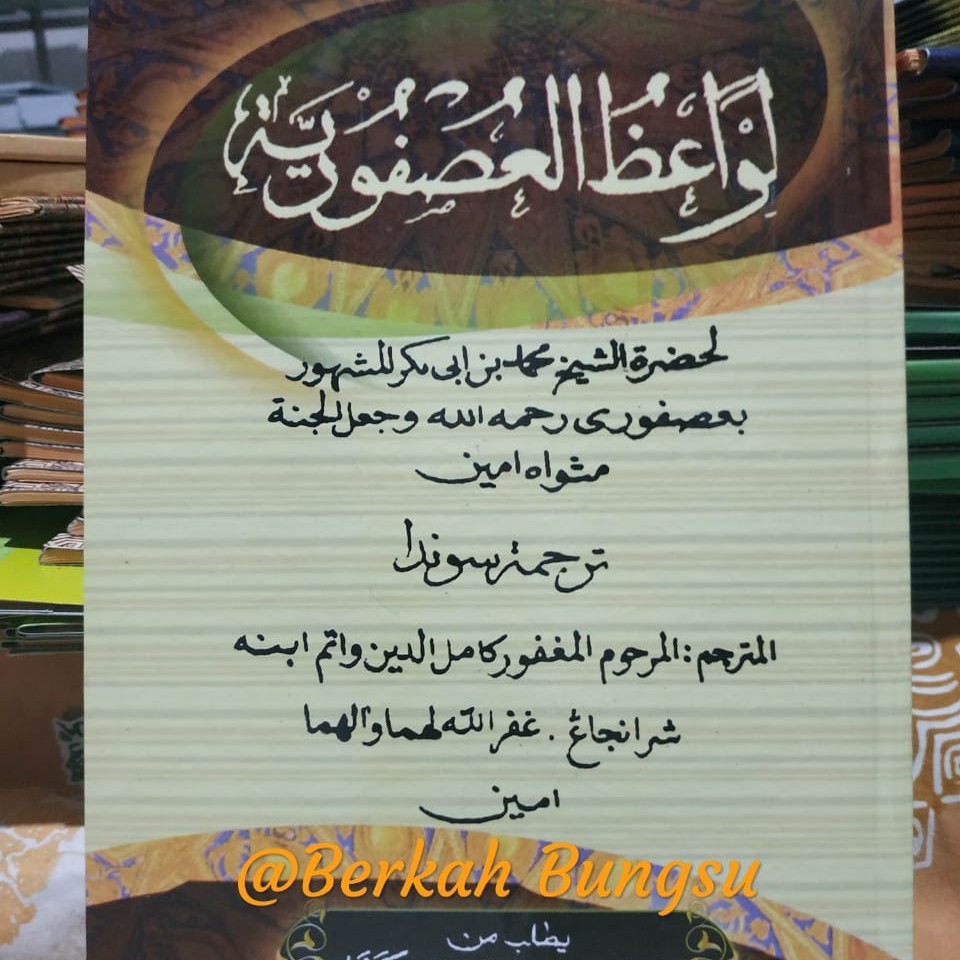 لَوَاعِظُ الْعُصْفُورِيَّة
لحضرة الشيخ محمد بن ابى بكر للشهور
بعصفورى رحمه الله وجعل الجنة
مثواه امين
ترجمة سوندا
المترجم: المرحوم المغفور كامل الدين واتم ابنه
شرانجاڠ . غفر الله لهما والهما
امين
@Berkah Bungsu
يطلب من